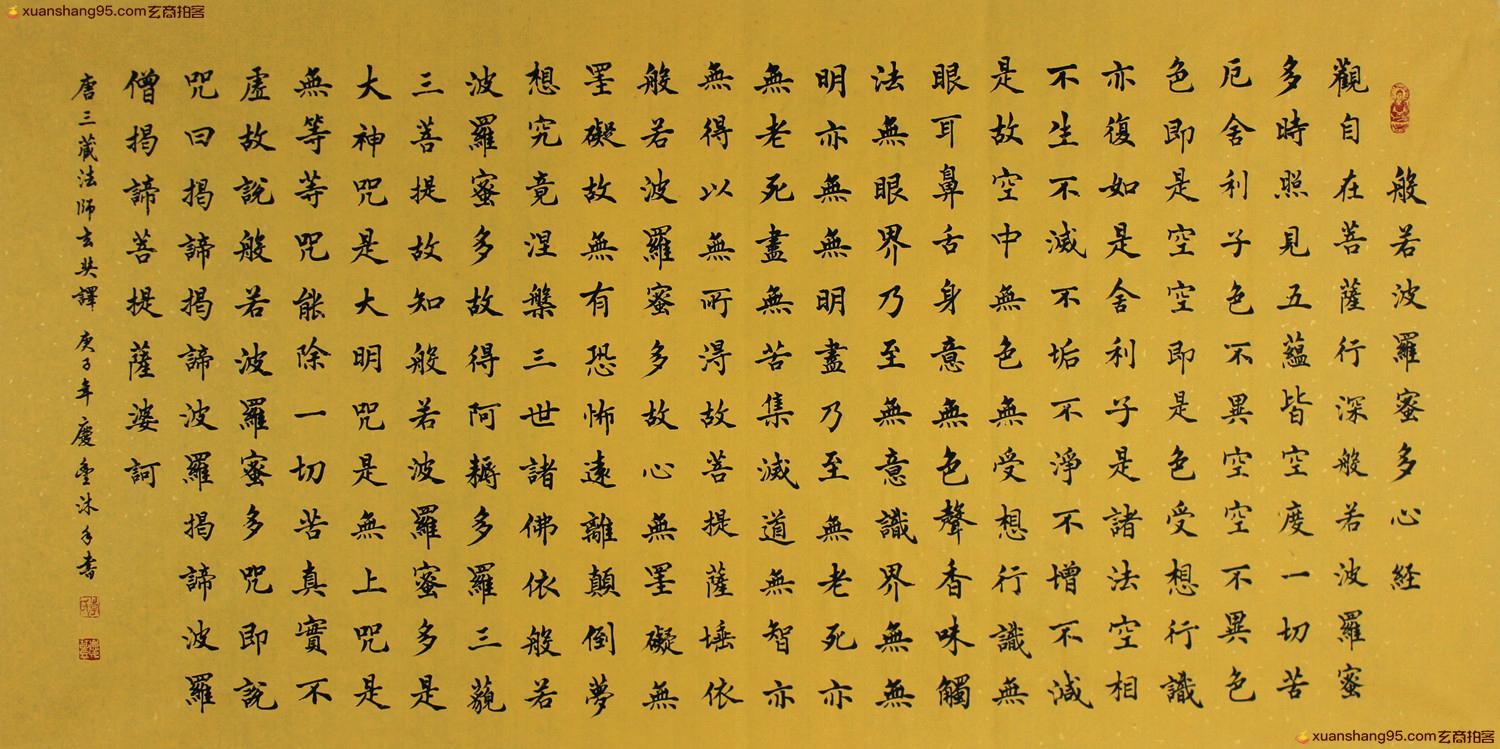 xuanshang95.com玄商拍客
般若波羅蜜多心経
觀自在菩薩行深般若波羅蜜
多時照見五蘊皆空度一切苦
厄舍利子色不異空空不異色
色即是空空即是色受想行識
亦復如是舍利子是諸法空相
不生不滅不垢不淨不增不減
是故空中無色無受想行識無
眼耳鼻舌身意無色聲香味觸
法無眼界乃至無意識界無無
明亦無無明盡乃至無老死亦
無老死盡無苦集滅道無智亦
無得以無所得故菩提薩埵依
般若波羅蜜多故心無罣礙無
罣礙故無有恐怖遠離顛倒夢
想究竟涅槃三世諸佛依般若
波羅蜜多故得阿耨多羅三藐
三菩提故知般若波羅蜜多是
大神咒是大明咒是無上咒是
無等等咒能除一切苦真實不
虛故說般若波羅蜜多咒即說
咒曰揭諦揭諦波羅揭諦波羅
僧揭諦菩提薩婆訶
唐三藏法師玄奘譯 庚子年慶沐手書
xuanshang95.com玄商拍客